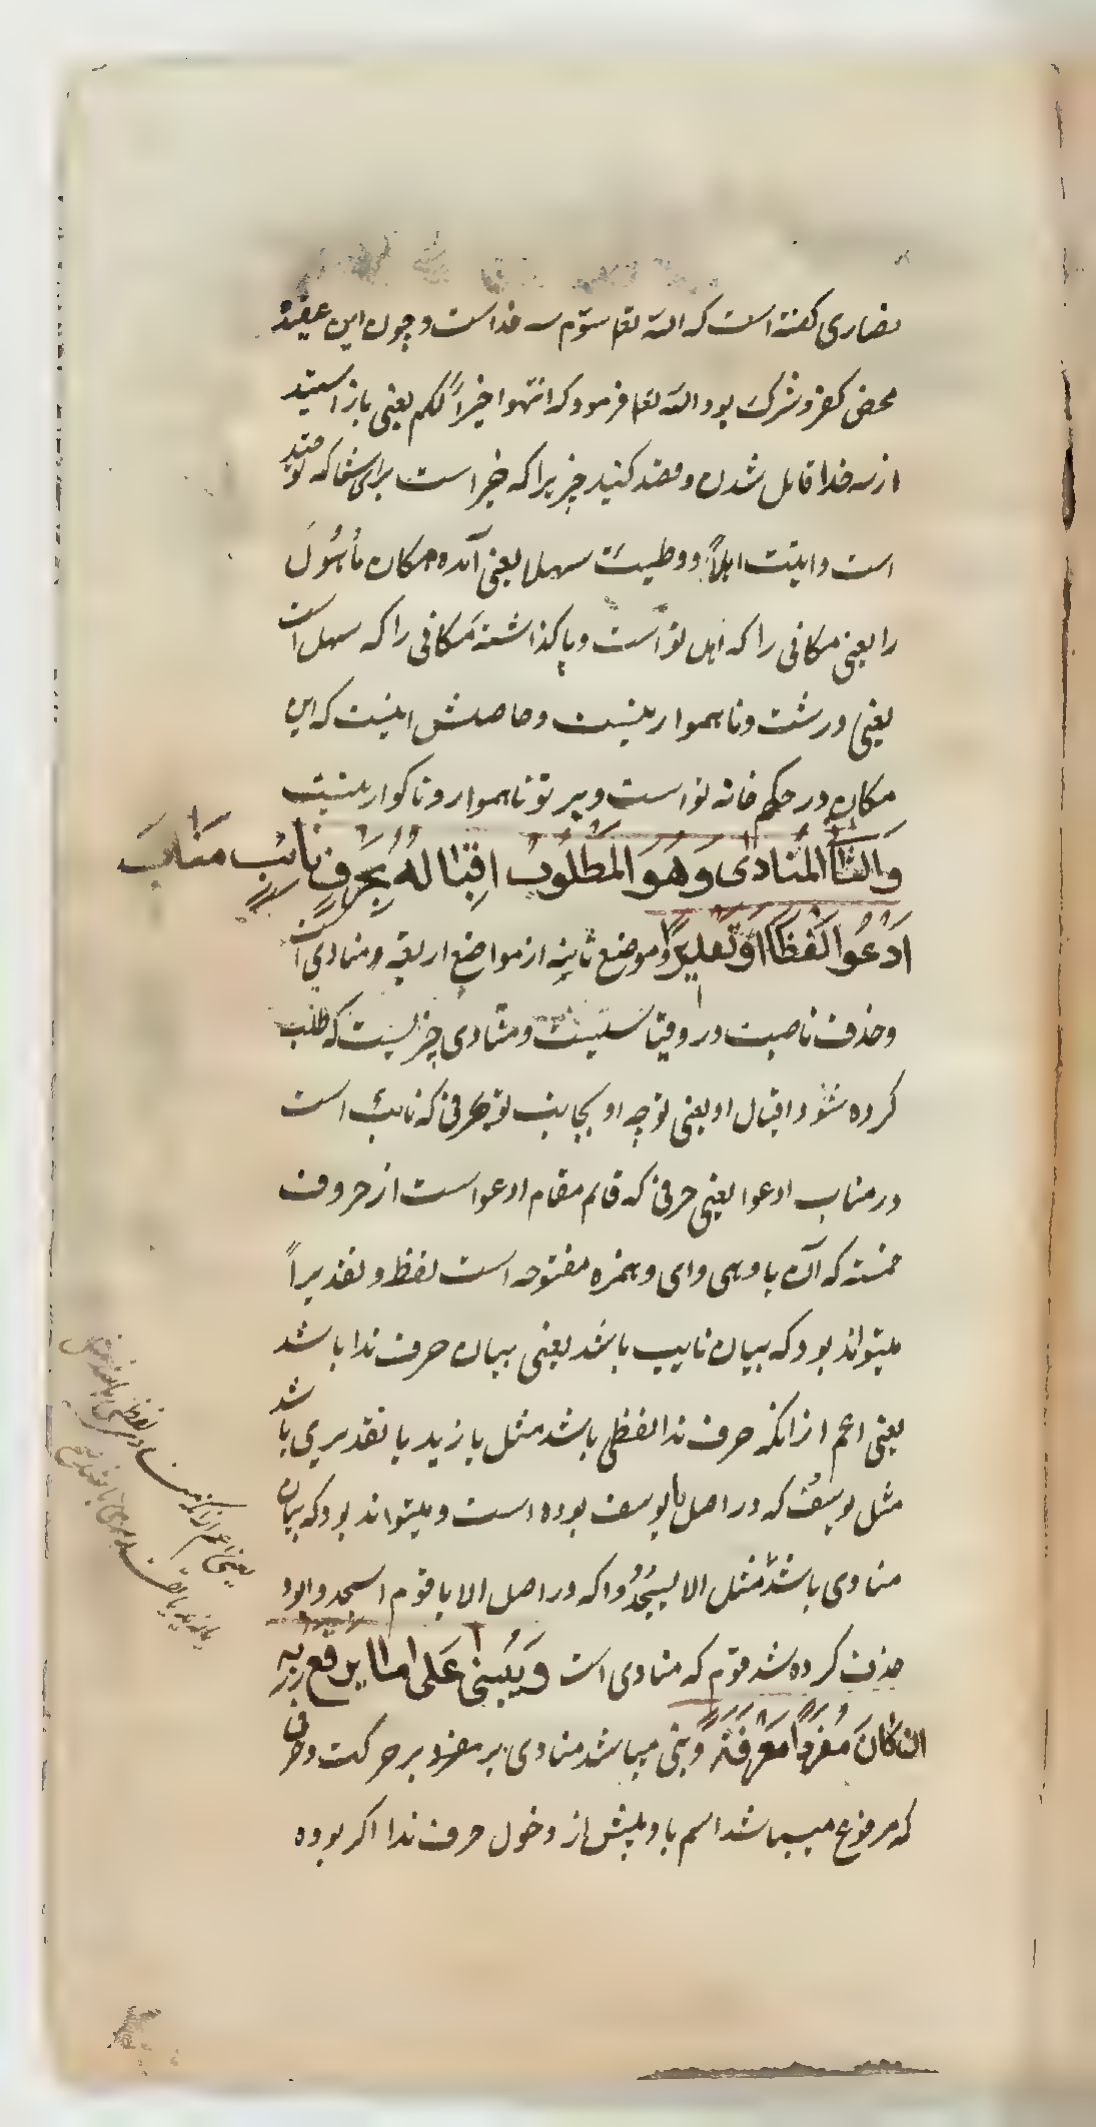 نصاری گفته است که الله تعا سوم سه خداست و چون این عقیده
محض کفر و شرک بود الله تعا فرمود که انتهوا خیراً لکم یعنی باز استید
از سه خدا قایل شدن و قصد کنید چیزیرا که خیر است برای شما که توحید
است و اتیت اهلاً و وطیت سهلا یعنی آمده مکان مأهول
را یعنی مکانی را که اهل تو است و پا گذاشته مکانی را که سهل است
یعنی درشت و ناهموار نیست و حاصلش اینست که این
مکان در حکم خانه تو است و بر تو ناهموار و ناگوار نیست
وَالثَّانِی المُنَادٰی وَهُوَ المَطْلُوبُ اِقْبَالُهُ بِحَرْفٍ نَائِبٍ مَنَابَ
اَدْعُوا لَفْظًا اَوْ تَقْدِیرًا و موضع ثانی از مواضع اربعه منادی است
و حذف ناصب در و قیاسیست و منادی چیزیست که طلب
کرده شود اقبال او یعنی توجه او بجانب تو بحرفی که نایب است
در مناب ادعوا یعنی حرفی که قائم مقام ادعو است از حروف
خمسه که آن یا و هی و ای و همزه مفتوحه است لفظ و تقدیراً
میتواند بود که بیان نایب باشد یعنی بیان حرف ندا باشد
یعنی اعم از انکه حرف ندا لفظی باشد مثل یا زید یا تقدیری باشد
مثل یوسفُ که در اصل یا یوسف بوده است و میتواند بود که بیان
منادی باشد مثل الا یسجُدُوا که در اصل الا یا قوم اسجدوا بود
حذف کرده شد قوم که منادی است وَیُبْنٰی عَلٰی مَا یُرْفَعُ بِهِ
اِنْ کَانَ مُفْرَدًا مَعْرِفَةً و مبنی میباشد منادی بر مفرد بر حرکت و حرفی
که مرفوع میباشد اسم با و پیش از دخول حرف ندا اگر بوده
یعنی اعم از انکه منادی لفظی باشد